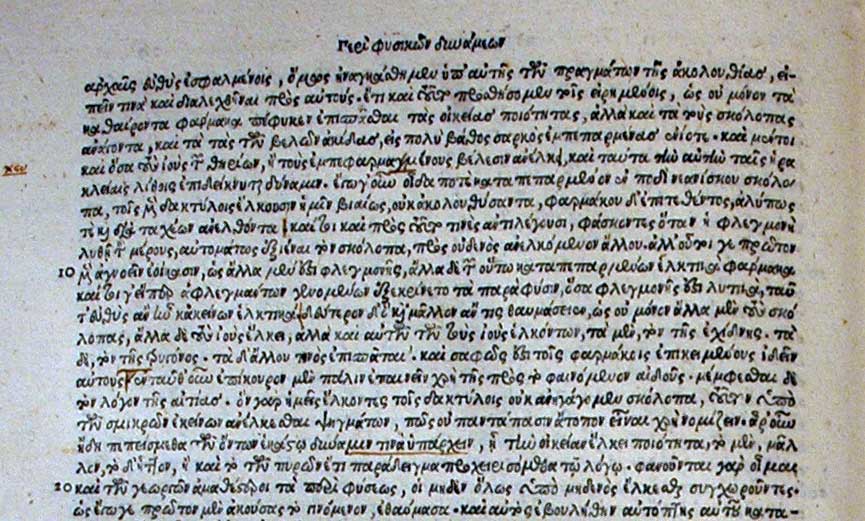 Περὶ φυσικῶν δυνάμεων
ἀρχαῖς εὐθὺς ἐσφαλμένοις, ὅμως ἠναγκάσθημεν ὑπ' αὐτῆς τῶν πραγμάτων τῆς ἀκολουθίας, εἰ-
πεῖν τινα καὶ διαλεχθῆναι πρὸς αὐτούς. ἔτι καὶ τοῦτο προσθήσομεν τοῖς εἰρημένοις, ὡς οὐ μόνον τὰ
καθαίροντα φάρμακα πέφυκεν ἐπισπᾶσθαι τὰς οἰκείας ποιότητας, ἀλλὰ καὶ τὰ τοὺς σκόλοπας
ἀνάγοντα, καὶ τὰ τὰς τῶν βελῶν ἀκίδας, εἰς πολὺ βάθος σαρκὸς ἐμπεπαρμένας ἐνίοτε. καὶ μέντοι
καὶ ὅσα τοὺς ἰοὺς τῶν θηρίων, ἢ τοὺς ἐμπεφαρμαγμένους βέλεσιν ἀνέλκει, καὶ ταῦτα τὴν αὐτὴν ταῖς ἡρα
κλείαις λίθοις ἐπιδείκνυται δύναμιν. ἔγωγ' οὖν οἶδά ποτε καταπεπαρμένον ἐν ποδὶ νεανίσκου σκόλο-
πα, τοῖς μὲν δακτύλοις ἕλκουσιν ἡμῖν βιαίως, οὐκ ἀκολουθήσαντα, φαρμάκου δ' ἐπιτεθέντος, ἀλύπως
τε καὶ διὰ ταχέων ἀνελθόντα. καίτοι καὶ πρὸς τοῦτό τινες ἀντιλέγουσι, φάσκοντες ὅταν ἡ φλεγμονὴ
λυθῇ τοῦ μέρους, αὐτομάτως ἐξιέναι τὸν σκόλοπα, πρὸς οὐδενὸς ἀνελκόμενον ἄλλου. ἀλλ' οὗτοί γε πρῶτον
10 μὲν ἀγνοεῖν ἐοίκασιν, ὡς ἄλλα μέν ἐστι φλεγμονῆς, ἄλλα δὲ τῶν οὕτω καταπεπαρμένων ἑλκτικὰ φάρμακα
καίτοι γ' εἴπερ ἀφλεγμάντων γενομένων ἐξεκρίνετο τὰ παρὰ φύσιν, ὅσα φλεγμονῆς ἐστι λυτικά, ταῦ
τ' εὐθὺς ἂν ἦν κἀκείνων ἑλκτικά. δεύτερον δ' ὃ καὶ μᾶλλον ἄν τις θαυμάσειεν, ὡς οὐ μόνον ἄλλα μὲν τοὺς σκό
λοπας, ἄλλα δὲ τοὺς ἰοὺς ἕλκει, ἀλλὰ καὶ αὐτῶν τῶν τοὺς ἰοὺς ἑλκόντων, τὰ μὲν, τὸν τῆς ἐχίδνης. τὰ
δὲ, τὸν τῆς τρυγόνος. τὰ δ' ἄλλου τινὸς ἐπισπᾶται. καὶ σαφῶς ἐστι τοῖς φαρμάκοις ἐπικειμένους ἰδεῖν
αὐτούς. ἐνταῦθ' οὖν ἐπίκουρον μὲν πάλιν ἐπαινεῖν χρὴ τῆς πρὸς τὸ φαινόμενον αἰδοῦς. μέμφεσθαι δὲ
τὸν λόγον τῆς αἰτίας. ὃν γὰρ ἡμεῖς ἕλκοντες τοῖς δακτύλοις οὐκ ἀνηγάγομεν σκόλοπα, τοῦτον ὑπὸ
τῶν σμικρῶν ἐκείνων ἀνέλκεσθαι ψηγμάτων, πῶς οὐ παντάπασιν ἄτοπον εἶναι χρὴ νομίζειν. ἆρ' οὖν
ἤδη πεπείσμεθα τῶν ὄντων ἑκάστῳ δύναμίν τινα ὑπάρχειν, ᾗ τὴν οἰκείαν ἕλκει ποιότητα, τὸ μὲν, μᾶλ
λον, τὸ δ' ἧττον, ἢ καὶ τὸ τῶν πυρῶν ἔτι παράδειγμα προχειρισόμεθα τῷ λόγῳ. φανοῦνται γὰρ οἶμαι
20 καὶ τῶν γεωργῶν ἀμαθέστεροι τὰ περὶ φύσεως, οἱ μηδὲν ὅλως ὑπὸ μηδενὸς ἕλκεσθαι συγχωροῦντες.
ὡς ἔγωγε πρῶτον μὲν ἀκούσας τὸ γινόμενον, ἐθαύμασα. καὶ αὐτὸς ἐβουλήθην αὐτόπτης αὐτοῦ κατα-